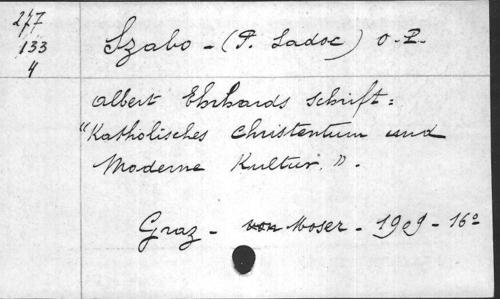 247
133
4
Szabo - (P. Sadoc) O. P.
Albert Ehrhards Schrift:
"Katholisches Christentum und
Moderne Kultur." -
Graz - Moser - 1909 - 16°